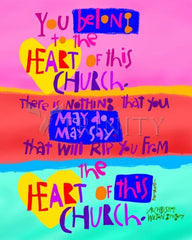 You belong
to the
HEART of this
CHURCH.
There is NOTHING that you
may do,
may say
that will rip you from
the
HEART of this
CHURCH.